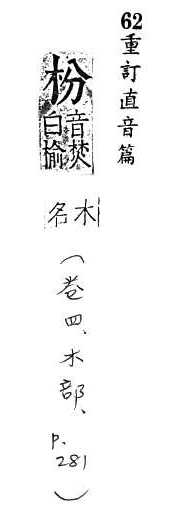 62重訂直音篇
枌音焚白榆
木名
(卷四、木部、p.281)